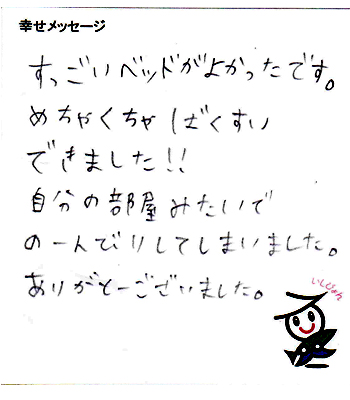 幸せメッセージ
すっごいベッドがよかったです。
めちゃくちゃばくすい
できました!!
自分の部屋みたいで
のーんびりしてしまいました。
ありがとーございました。